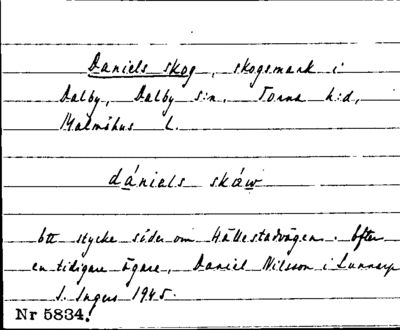 Daniels skog, skogsmark i
Dalby, Dalby s:n, Torna h:d,
Malmöhus L.
dániels skáw
Ett stycke söder om Hällestadvägen. Efter
en tidigare ägare, Daniel Nilsson i Lunnarp
S. Ingers 1945.
Nr 5834.